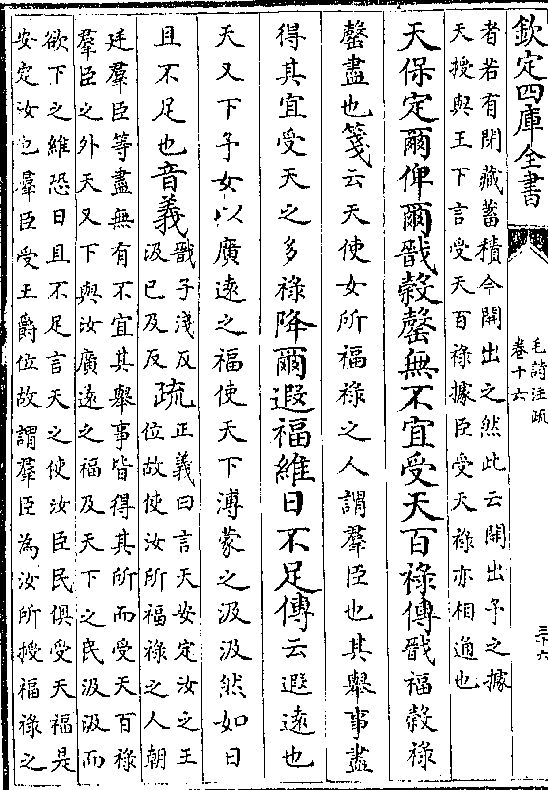 欽定四庫全書
毛詩注疏
卷十六
三十六
者若有閉藏蓄積今開出之然此云開出予之據
天授與王下言受天百祿據臣受天祿亦相通也
天保定爾俾爾戩穀罄無不宜受天百祿傳戩福穀祿
罄盡也箋云天使女所福祿之人謂羣臣也其舉事盡
得其宜受天之多祿降爾遐福維日不足傳云遐遠也
天又下予女以廣遠之福使天下溥蒙之汲汲然如日
且不足也音義戩子淺反
汲已及反疏正義曰言天安定汝之王
位故使汝所福祿之人朝
廷羣臣等盡無有不宜其舉事皆得其所而受天百祿
羣臣之外天又下與汝廣遠之福及天下之民汲汲而
欲下之維恐日且不足言天之使汝臣民俱受天福是
安定汝也羣臣受王爵位故謂羣臣為汝所授福祿之